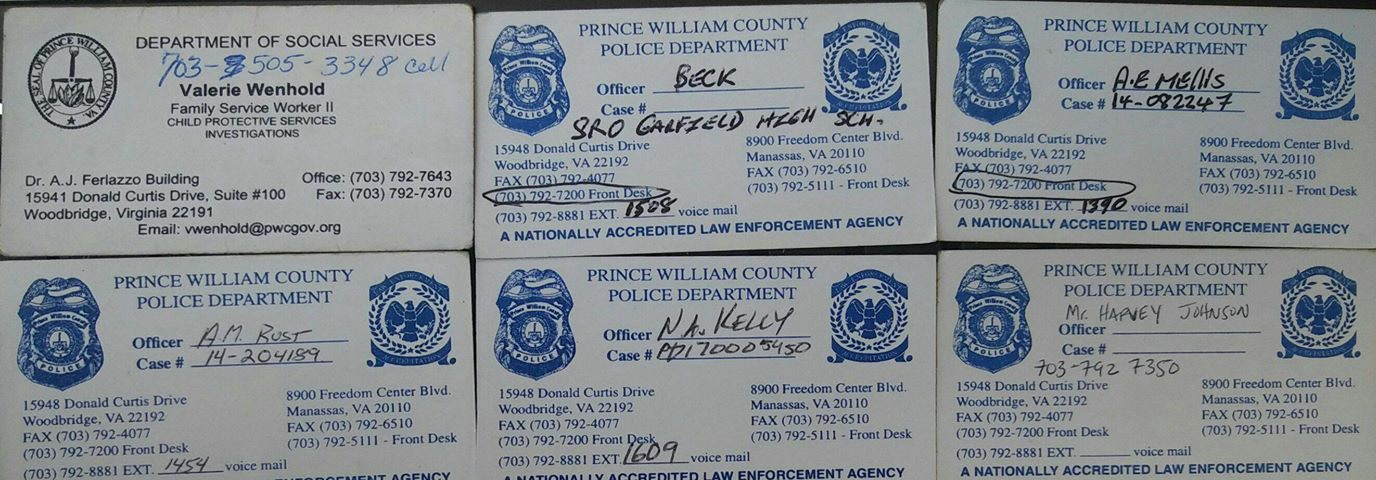 THE SEAL OF PRINCE WILLIAM COUNTY, VA.
DEPARTMENT OF SOCIAL SERVICES
703-505-3348 cell
Valerie Wenhold
Family Service Worker II
CHILD PROTECTIVE SERVICES
INVESTIGATIONS
Dr. A.J. Ferlazzo Building
15941 Donald Curtis Drive, Suite #100
Woodbridge, Virginia 22191
Office: (703) 792-7643
Fax: (703) 792-7370
Email: vwenhold@pwcgov.org
PRINCE WILLIAM COUNTY
POLICE DEPARTMENT
Prince William County
POLICE
ACCREDITATION
Officer BECK
Case #
SRO GARFIELD HIGH SCH.
15948 Donald Curtis Drive
Woodbridge, VA 22192
FAX (703) 792-4077
(703) 792-7200 Front Desk
(703) 792-8881 EXT. 1508 voice mail
8900 Freedom Center Blvd.
Manassas, VA 20110
FAX (703) 792-6510
(703) 792-5111 - Front Desk
A NATIONALLY ACCREDITED LAW ENFORCEMENT AGENCY
PRINCE WILLIAM COUNTY
POLICE DEPARTMENT
Prince William County
POLICE
ACCREDITATION
Officer A.E MEllIS
Case # 14-082247
15948 Donald Curtis Drive
Woodbridge, VA 22192
FAX (703) 792-4077
(703) 792-7200 Front Desk
(703) 792-8881 EXT. 1390 voice mail
8900 Freedom Center Blvd.
Manassas, VA 20110
FAX (703) 792-6510
(703) 792-5111 - Front Desk
A NATIONALLY ACCREDITED LAW ENFORCEMENT AGENCY
PRINCE WILLIAM COUNTY
POLICE DEPARTMENT
Prince William County
POLICE
ACCREDITATION
Officer A.M. RUST
Case # 14-204189
15948 Donald Curtis Drive
Woodbridge, VA 22192
FAX (703) 792-4077
(703) 792-7200 Front Desk
(703) 792-8881 EXT. 1454 voice mail
8900 Freedom Center Blvd.
Manassas, VA 20110
FAX (703) 792-6510
(703) 792-5111 - Front Desk
ENFORCEMENT AGENCY
PRINCE WILLIAM COUNTY
POLICE DEPARTMENT
Prince William County
POLICE
ACCREDITATION
Officer N.A. KELLY
Case # PD170005450
15948 Donald Curtis Drive
Woodbridge, VA 22192
FAX (703) 792-4077
(703) 792-7200 Front Desk
(703) 792-8881 EXT. 1609 voice mail
8900 Freedom Center Blvd.
Manassas, VA 20110
FAX (703) 792-6510
(703) 792-5111 - Front Desk
A NATIONALLY ACCREDITED LAW ENFORCEMENT AGENCY
PRINCE WILLIAM COUNTY
POLICE DEPARTMENT
Prince William County
POLICE
ACCREDITATION
Mr. HARVEY JOHNSON
Officer
Case #
703-792 7350
15948 Donald Curtis Drive
Woodbridge, VA 22192
FAX (703) 792-4077
(703) 792-7200 Front Desk
(703) 792-8881 EXT. voice mail
8900 Freedom Center Blvd.
Manassas, VA 20110
FAX (703) 792-6510
(703) 792-5111 - Front Desk
A NATIONALLY ACCREDITED LAW ENFORCEMENT AGENCY